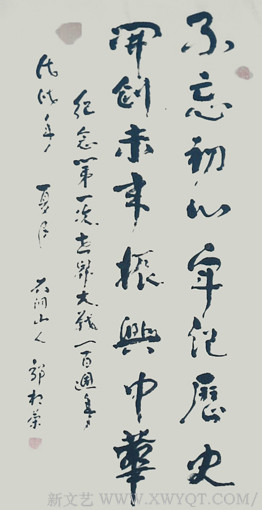 不忘初心牢記歷史
開創未來振興中華
纪念第一次世界大战一百週年
戊戌年 夏月 石门山人 郭松荣
新文艺 WWW.XWYQT.COM/